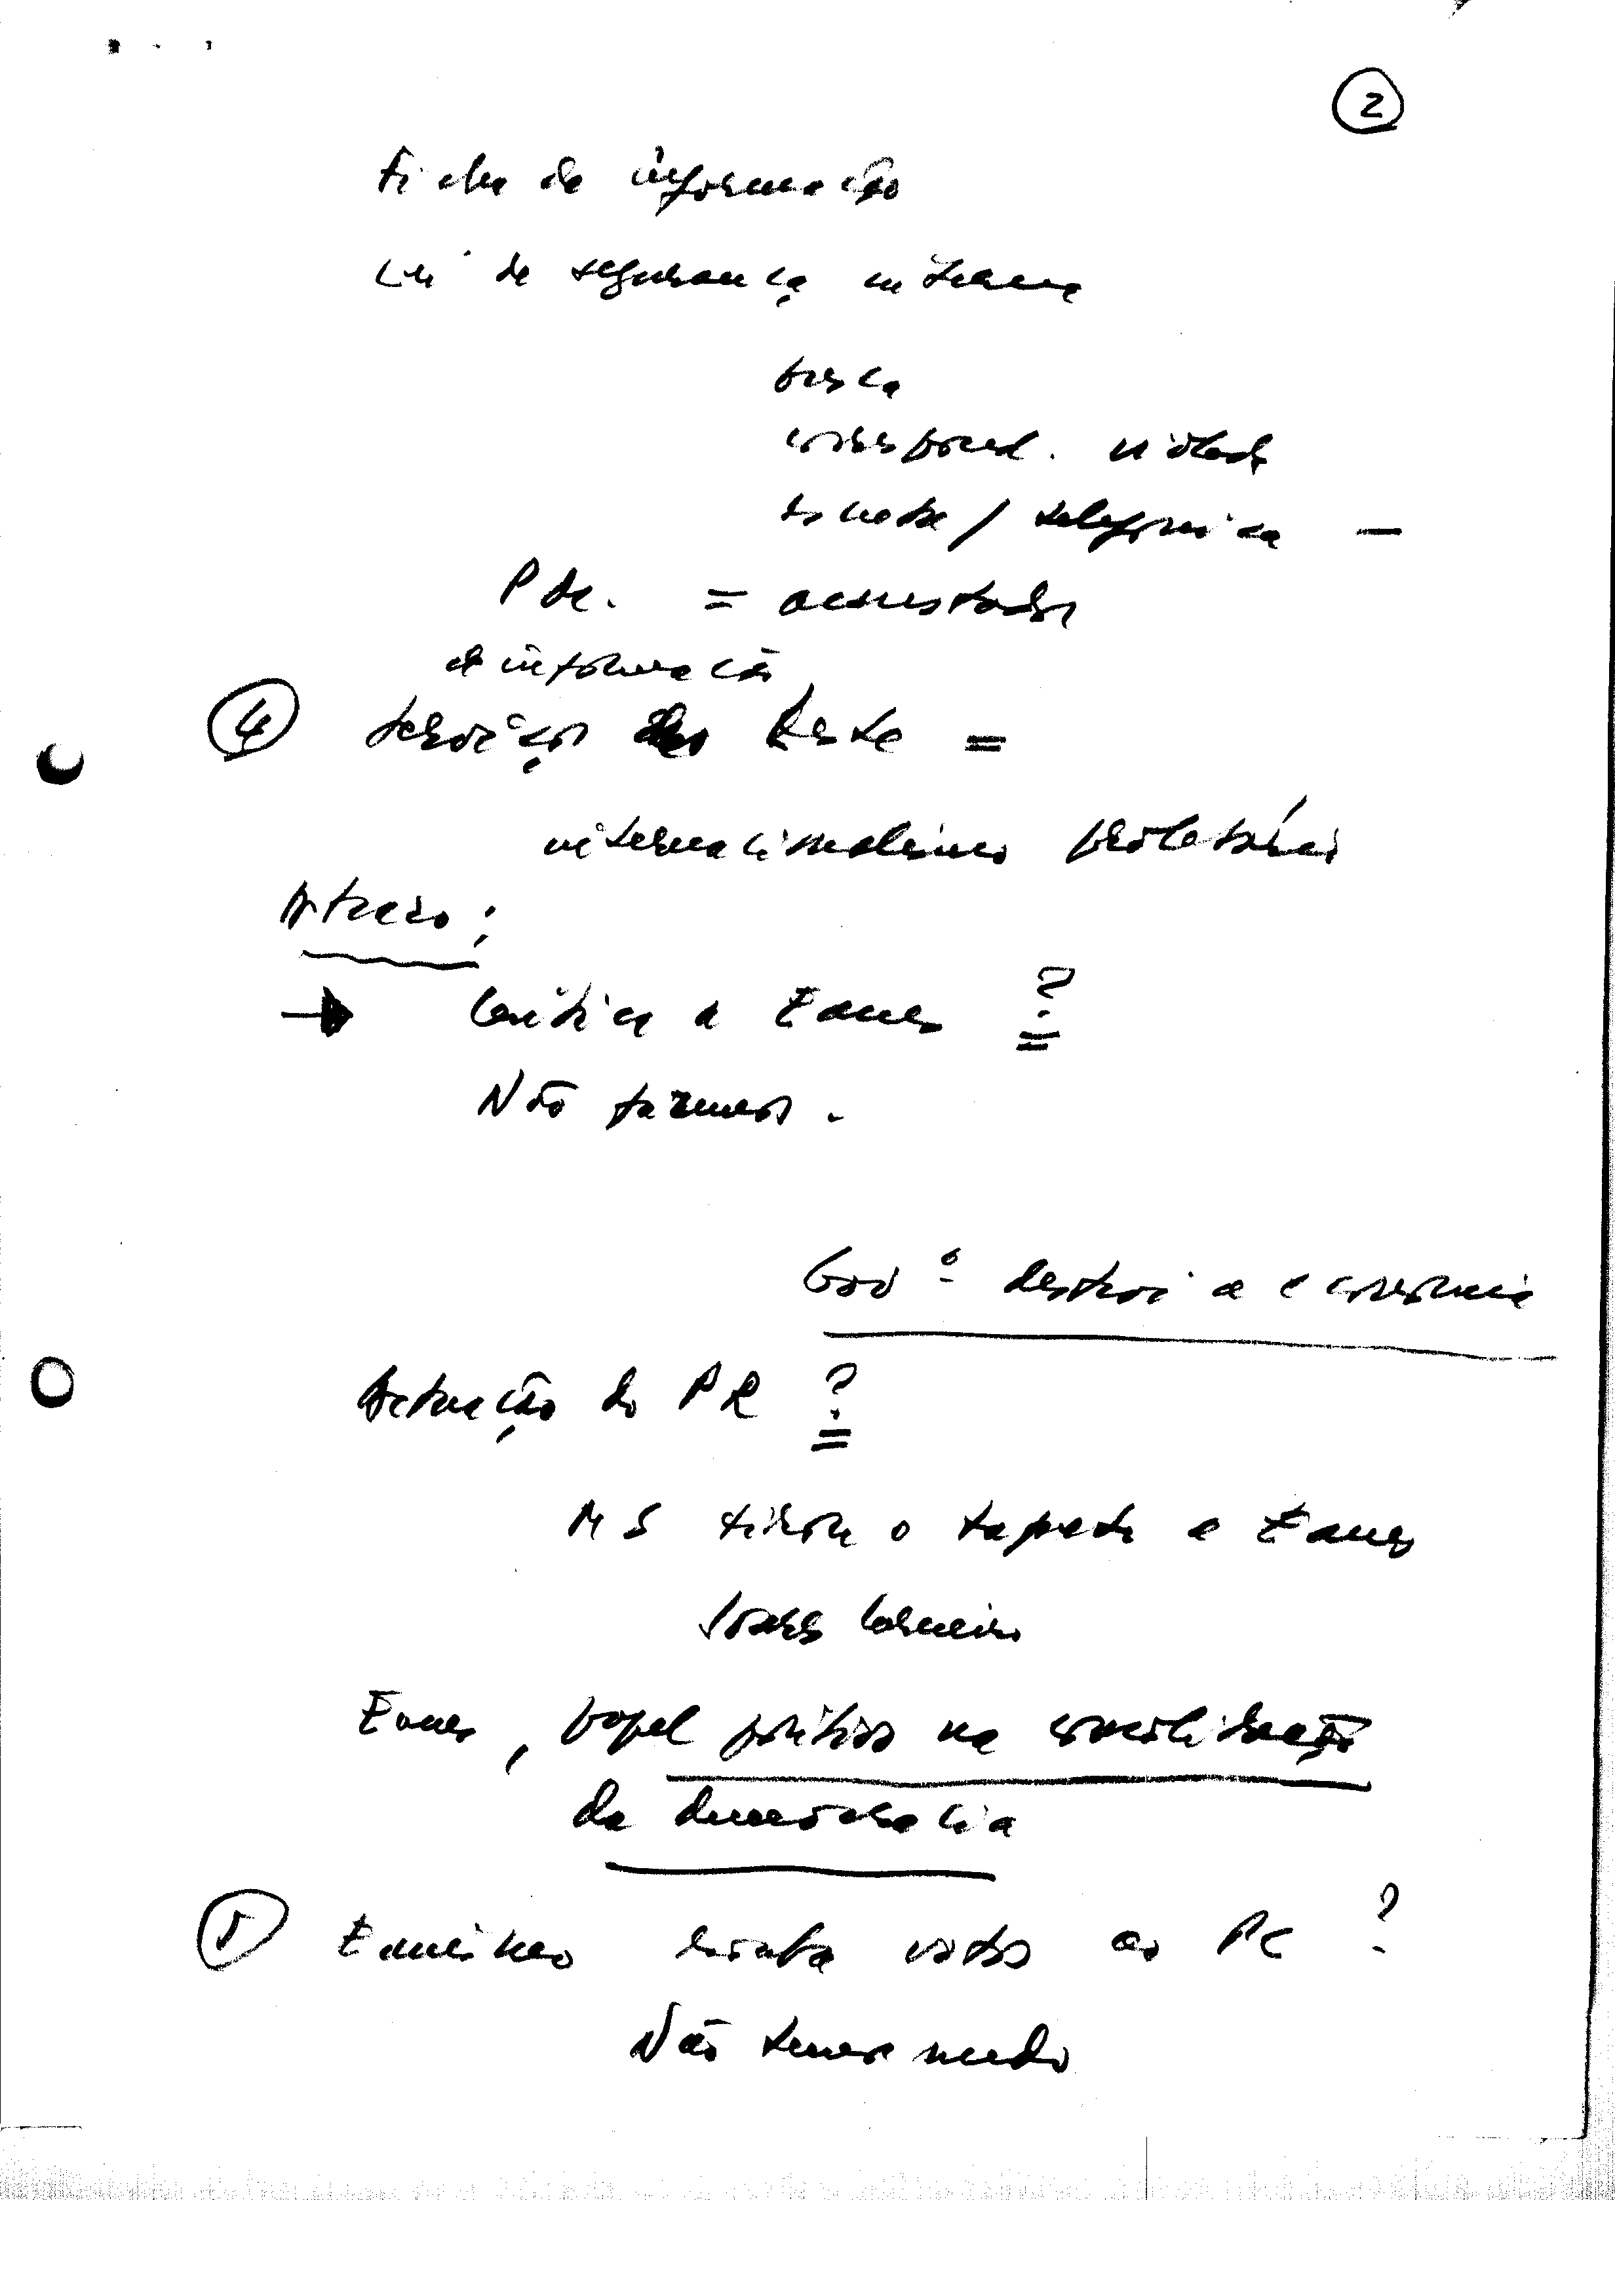 2
Ficha de informação
Lei de segurança interna
busca
correspond. violada
escuta / telefonica —
P de. = assustador
de informação
4 Serviços de Leste =
internacionalismo proletário
Atraso:
→ Crítica a Eanes ?
Não fazemos.
Govº destroi a economia
Actuação do PR ?
MS tirou o tapete a Eanes
Soares Carneiro
Eanes, papel político na consolidação
da democracia
5 Eanismo rouba votos ao PC ?
Não temos medo